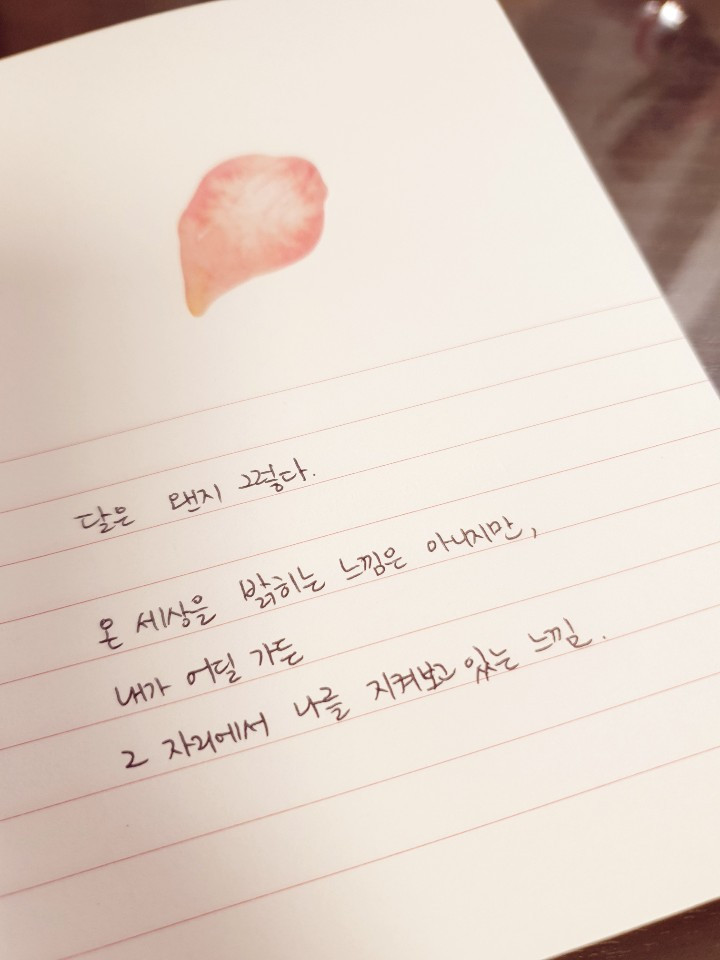 달은 왠지 그렇다.
온 세상을 밝히는 느낌은 아니지만,
내가 어딜 가든
그 자리에서 나를 지켜보고 있는 느낌.